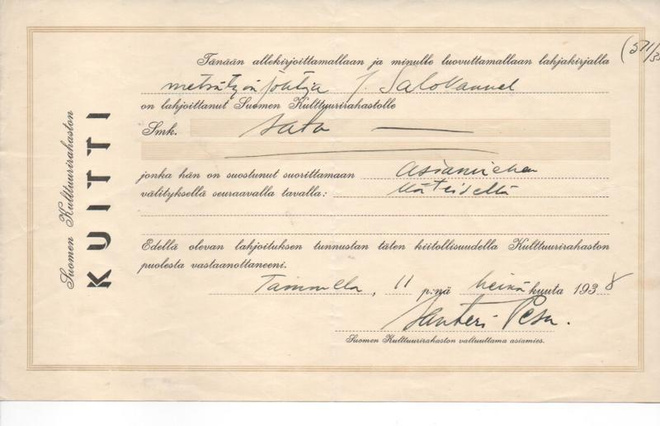 Suomen Kulttuurirahaston
KUITTI
(511/38
Tänään allekirjoittamallaan ja minulle luovuttamallaan lahjakirjalla
metsätyönjohtaja J.
on lahjoittanut Suomen Kulttuurirahastolle
Smk. sata —
jonka hän on suostunut suorittamaan asiamiehen
välityksellä seuraavalla tavalla: käteisellä
Edellä olevan lahjoituksen tunnustan täten kiitollisuudella Kulttuurirahaston
puolesta vastaanottaneeni.
11 p:nä heinäkuuta 1938
Santeri
Suomen Kulttuurirahaston valtuuttama asiamies.